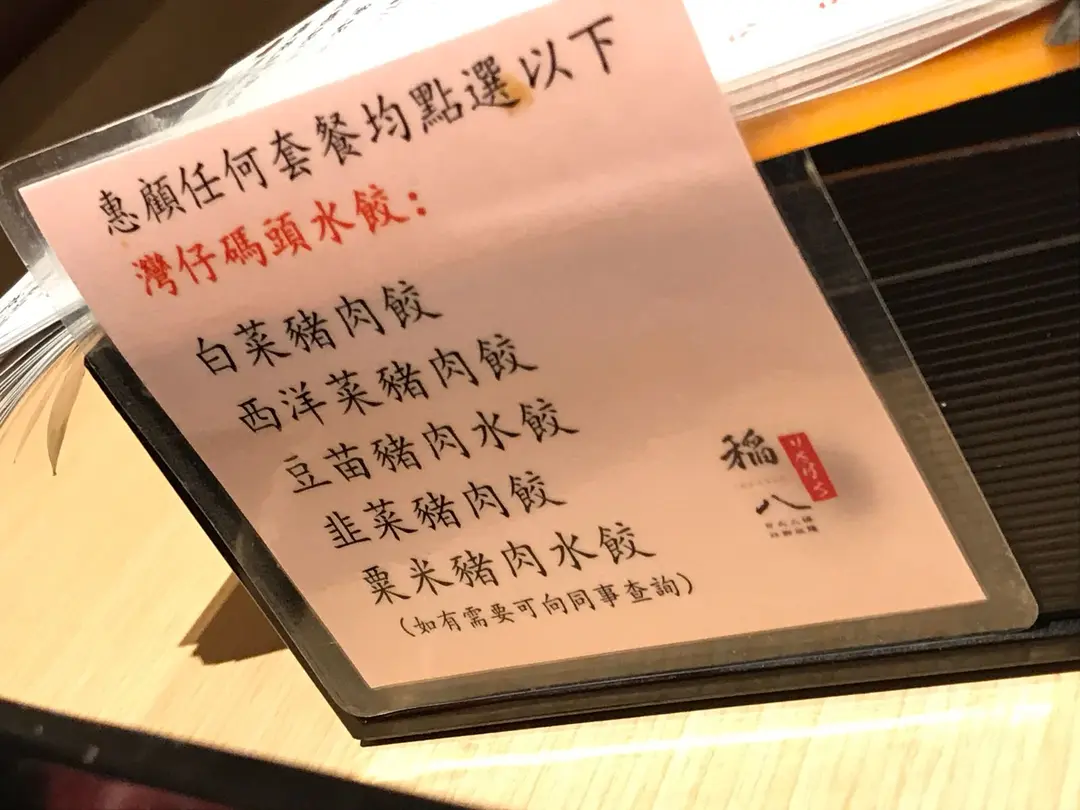 惠顧任何套餐均點選以下
灣仔碼頭水餃:
白菜豬肉餃
西洋菜豬肉餃
豆苗豬肉水餃
韭菜豬肉餃
粟米豬肉水餃
(如有需要可向同事查詢)
稲
八